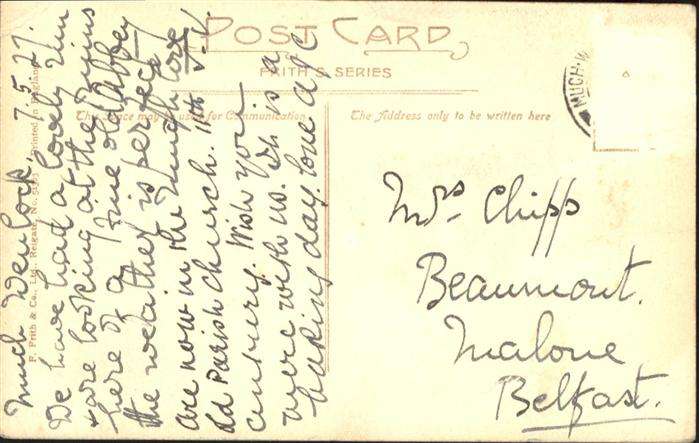 POST CARD
FRITH'S SERIES
This space may be used for Communication
The Address only to be written here
F. Frith & Co., Ltd., Reigate. No. Printed in England
MUCH W
Much Wenlock. 7.5.27.
We have had a lovely run
& are looking at the Ruins
here of a fine old Abbey
the weather is perfect
are now in the lovely
old Parish church. 11th
century. Wish you
were with us. It is a
baking day. love
Mrs. Chipp
Beaumont.
Malone
Belfast.